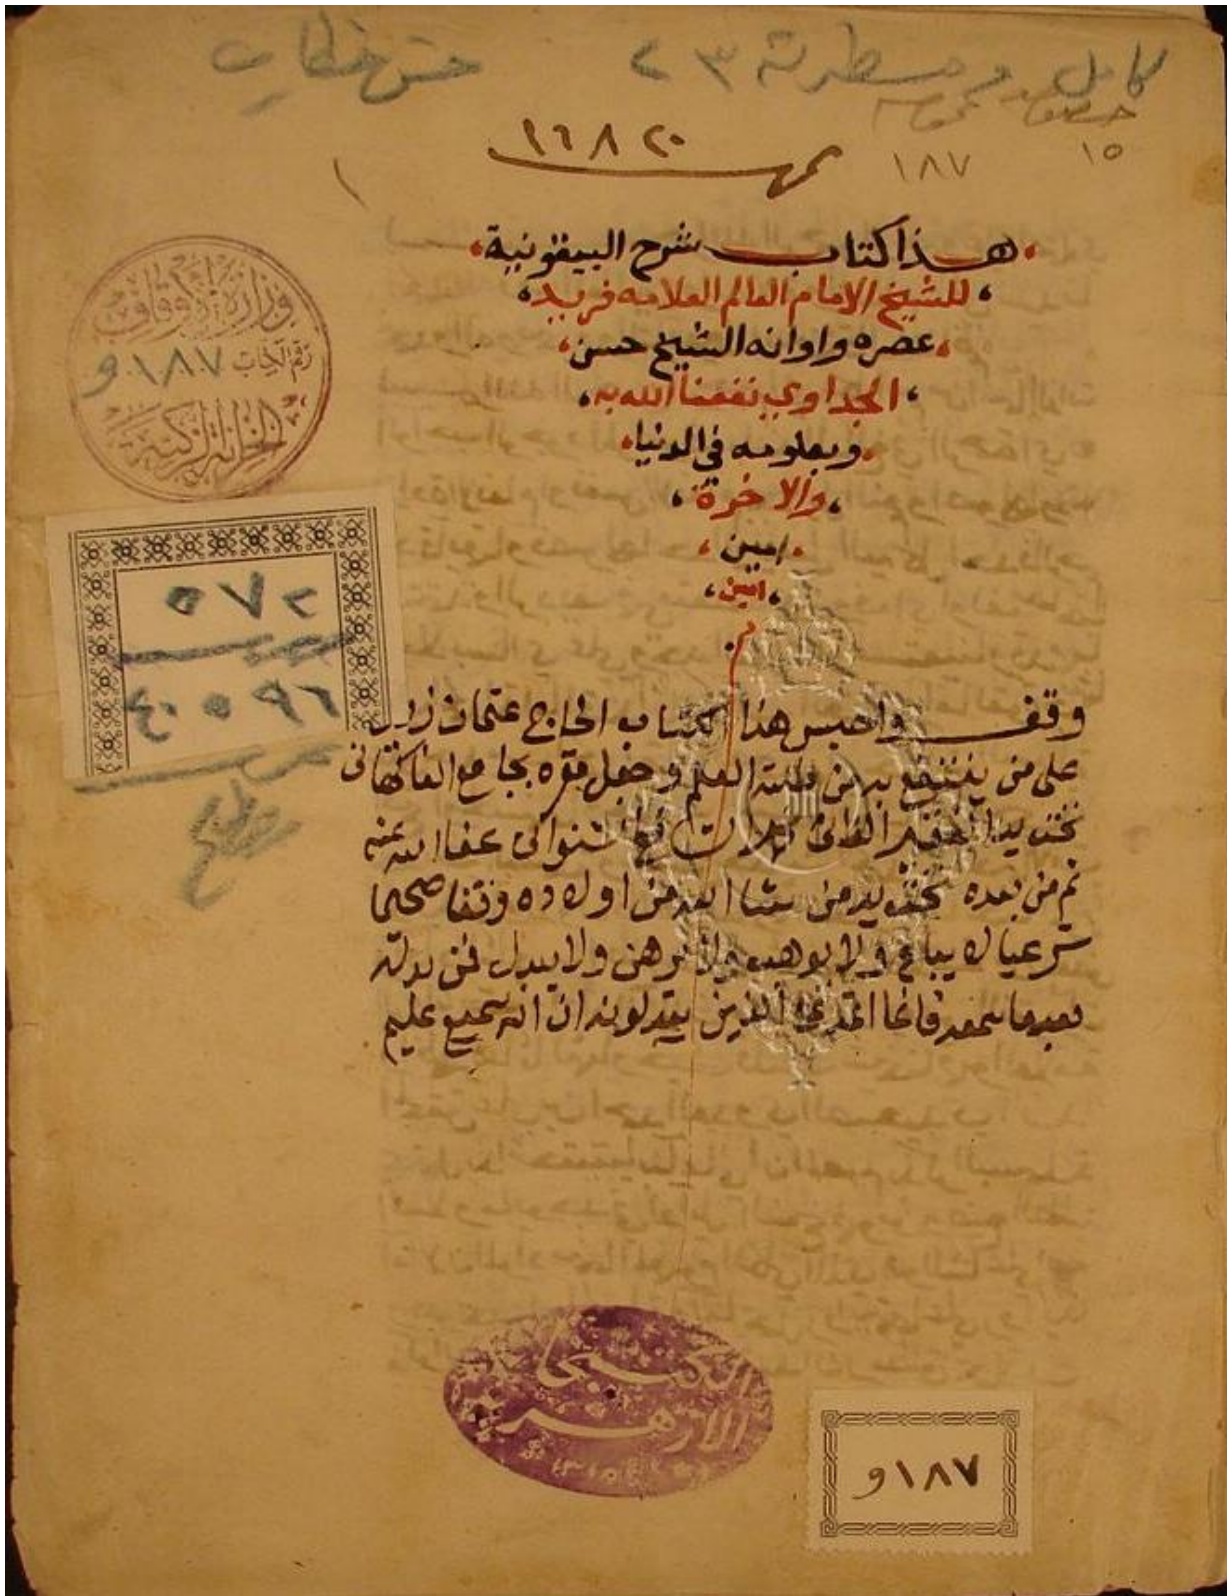 كامل ومسطرته ٢٣ حسن خطاب
١٥ ١٨٧
نمرة ١٦٨٢٠ ١
هذا كتاب شرح البيقونية
للشيخ الامام العالم العلامه فريد
عصره واوانه الشيخ حسن
الجداوي نفعنا الله به
وبعلومه في الدنيا
والاخرة
امين
امين
م
وزارة الاوقاف
رقم الكتاب ١٨٧ و
الخزانة الزكية
٢٧٥
وقف واحبس هذا الكتاب الحاج عثمان
على من ينتفع به من طلبة العلم وجعل مقره بجامع الفاكهانى
تحت يد الفقير الشنوانى عفا الله عنه
ثم من بعده تحت يد من شا الله من اولاده وقفا صحيحا
شرعيا لا يباع ولا يوهب ولا يرهن ولا يبدل فمن بدله
بعدما سمعه فانما اثمه على الذين يبدلونه ان الله سميع عليم
الكتبخانة
الازهرية
١٨٧ و